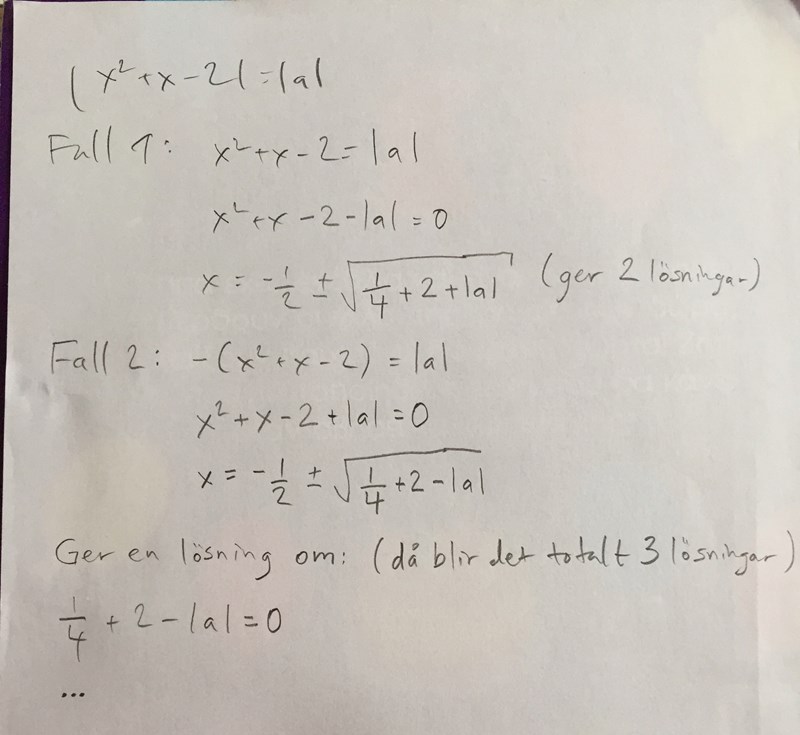 |x²+x-2|=|a|
Fall 1: x²+x-2=|a|
x²+x-2-|a|=0
x=-1/2 ± √(1/4+2+|a|) (ger 2 lösningar)
Fall 2: -(x²+x-2)=|a|
x²+x-2+|a|=0
x=-1/2 ± √(1/4+2-|a|)
Ger en lösning om: (då blir det totalt 3 lösningar)
1/4+2-|a|=0
...